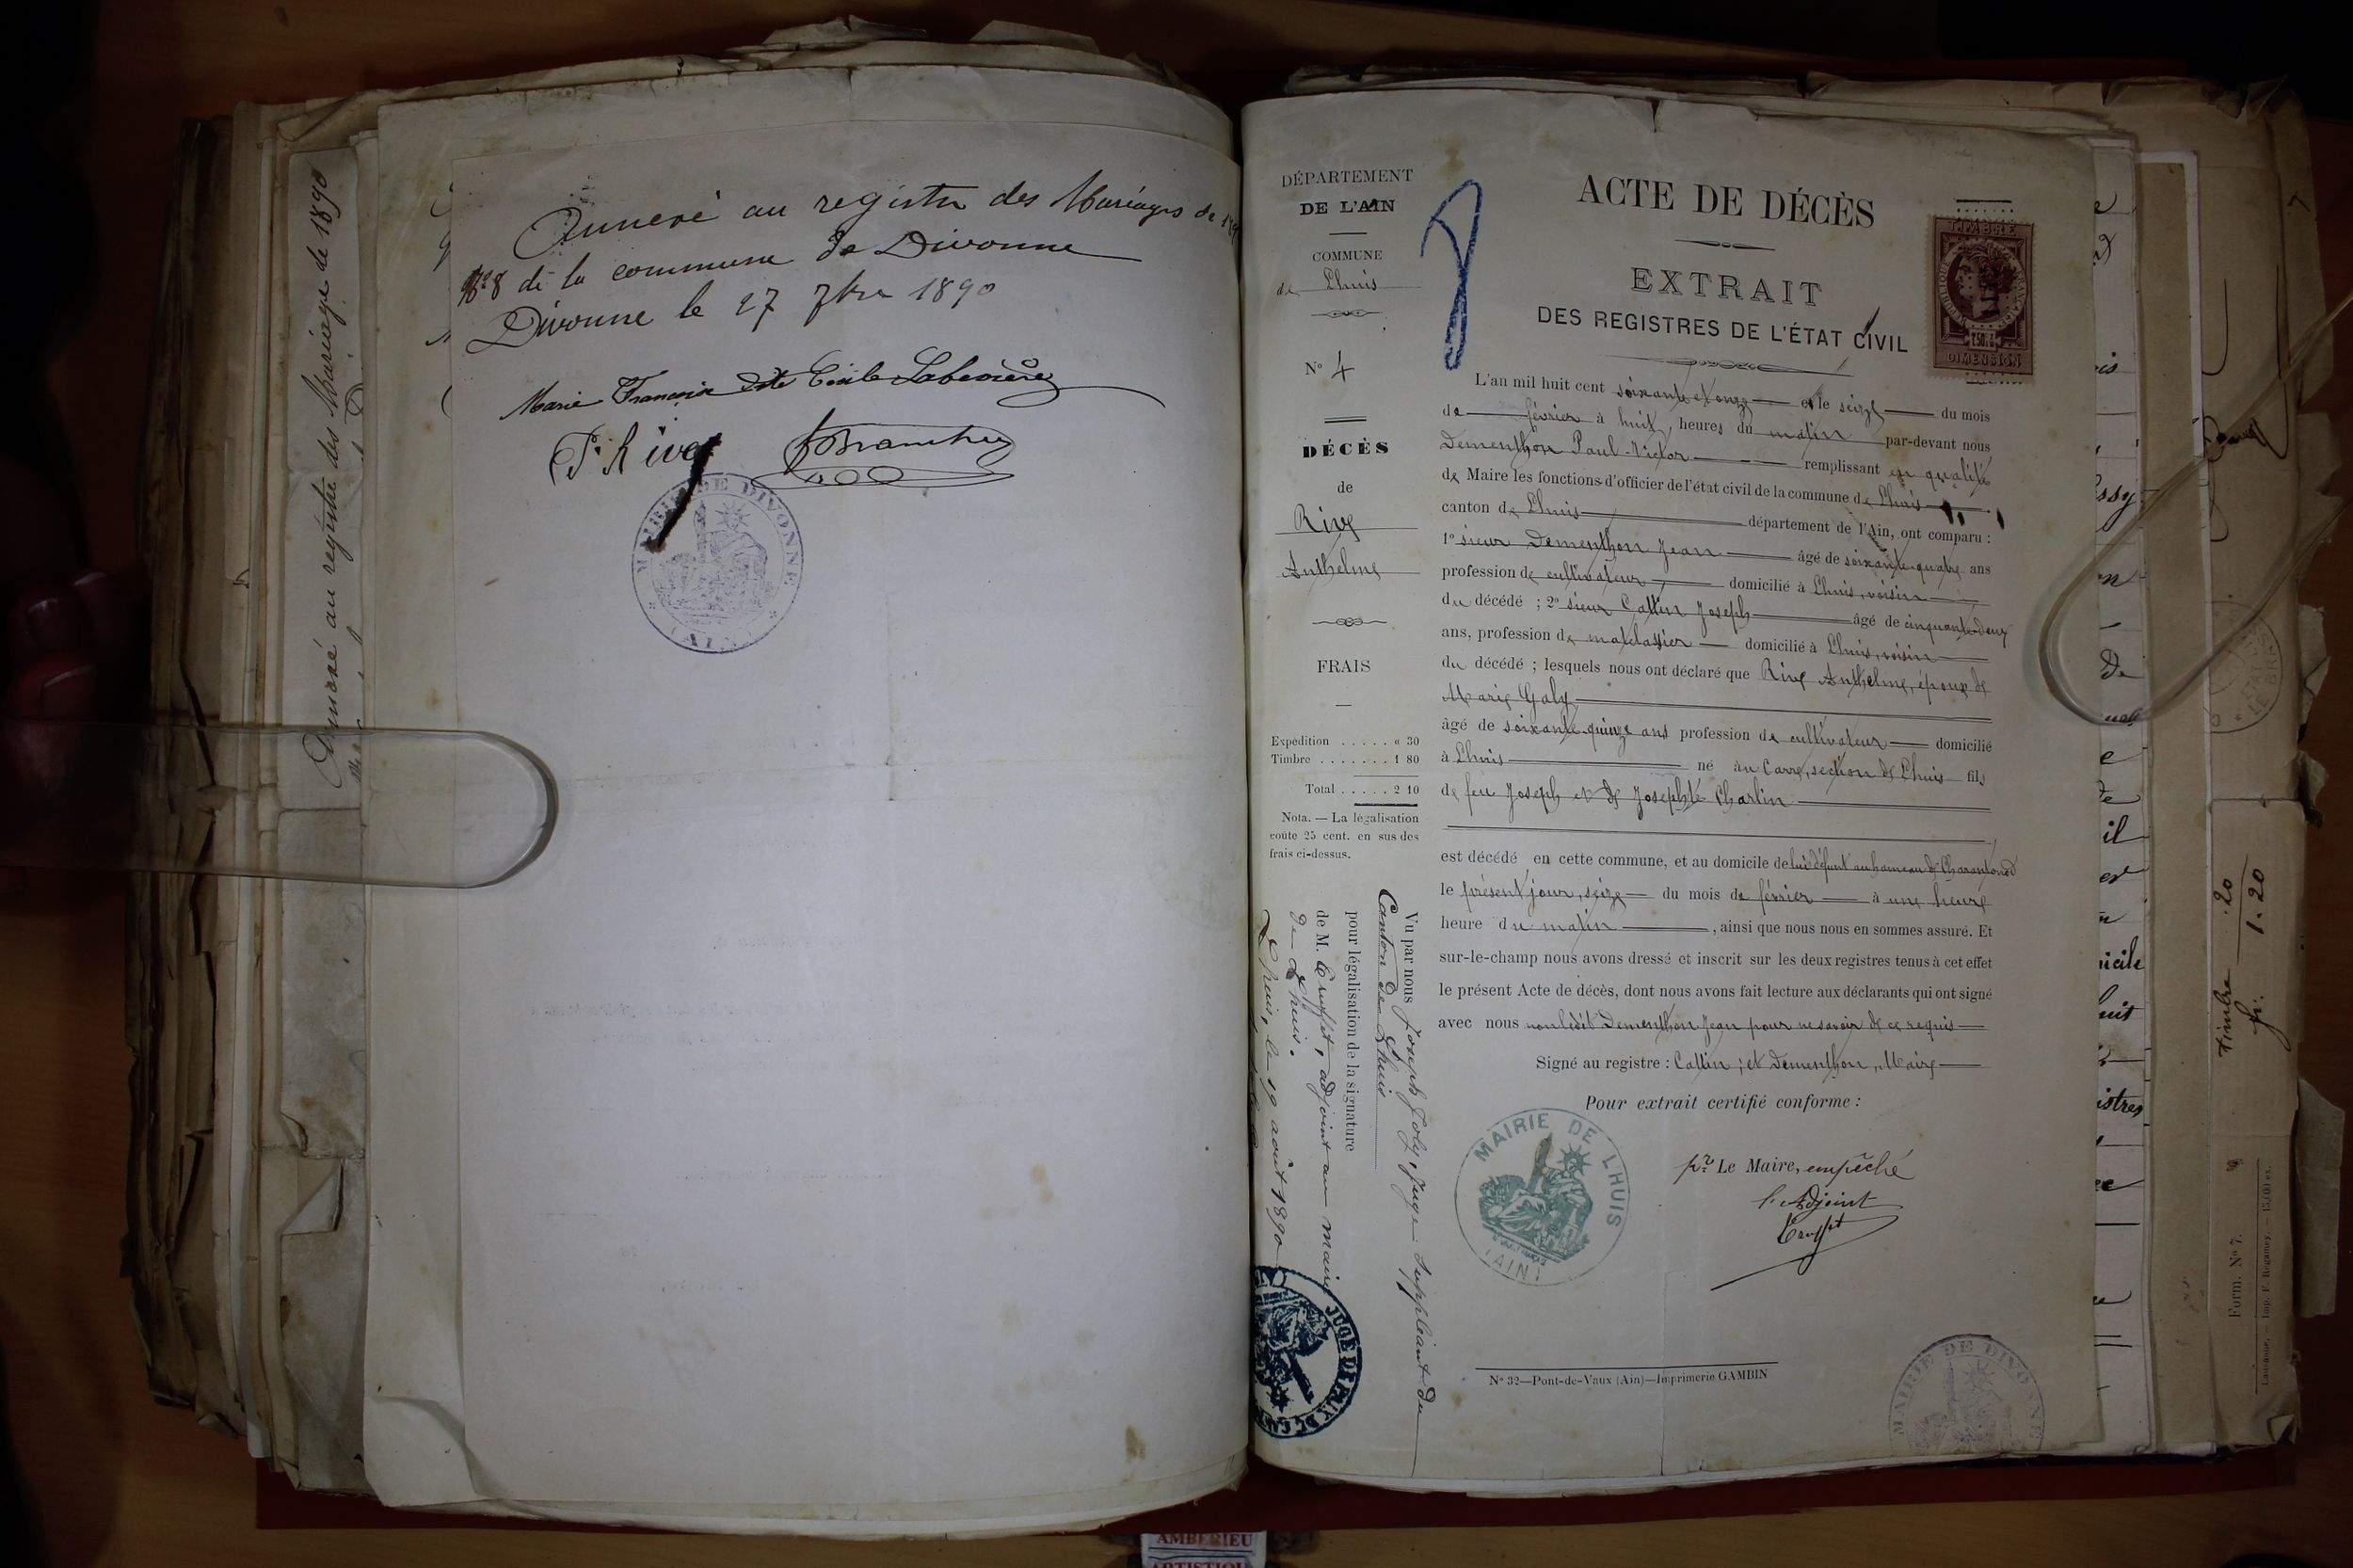 Annexé au registre des Mariages de 1890
Annexé au registre des Mariages de
No 8 de la commune de Divonne
Divonne le 27 7bre 1890
Marie Françoise dite Cécile Labevière
MAIRIE DE DIVONNE
(AIN)
DÉPARTEMENT
DE L'AIN
COMMUNE
de Lhuis
No 4
DÉCÈS
de
Rive
Anthelme
FRAIS
Expédition . . . . . « 30
Timbre . . . . . . . 1 80
Total . . . . . 2 10
Nota. — La légalisation
coûte 25 cent. en sus des
frais ci-dessus.
Vu par nous Joseph Joly, juge suppléant du
Canton de Lhuis
pour légalisation de la signature
de M. Cruffet, adjoint au maire
de Lhuis.
Lhuis, le 19 août 1890
JUGE DE PAIX DE
8
ACTE DE DÉCÈS
EXTRAIT
DES REGISTRES DE L'ÉTAT CIVIL
TIMBRE
DIMENSION
L'an mil huit cent soixante et onze et le seize du mois
de février à huit, heures du matin par-devant nous
Dementhon Paul-Victor remplissant en qualité
de Maire les fonctions d'officier de l'état civil de la commune de Lhuis
canton de Lhuis département de l'Ain, ont comparu :
1o sieur Dementhon Jean âgé de soixante-quatre ans
profession de cultivateur domicilié à Lhuis, voisin
du décédé ; 2o sieur Callin Joseph âgé de cinquante-deux
ans, profession de matelassier domicilié à Lhuis, voisin
du décédé ; lesquels nous ont déclaré que Rive Anthelme, époux de
Marie Galy
âgé de soixante-quinze ans profession de cultivateur domicilié
à Lhuis né au Carre, section de Lhuis fils
de feu Joseph et de Josephte Charlin
est décédé en cette commune, et au domicile de lui défunt au hameau de Charantonod
le présent jour, seize du mois de février à une heure
heure du matin , ainsi que nous nous en sommes assuré. Et
sur-le-champ nous avons dressé et inscrit sur les deux registres tenus à cet effet
le présent Acte de décès, dont nous avons fait lecture aux déclarants qui ont signé
avec nous non ledit Dementhon Jean pour ne savoir de ce requis
Signé au registre : Callin ; et Dementhon, Maire
Pour extrait certifié conforme :
pr Le Maire, empêché
l'Adjoint
MAIRIE DE LHUIS
(AIN)
No 32—Pont-de-Vaux (Ain)—Imprimerie GAMBIN
MAIRIE DE DIVONNE
icile
istres
Timbre
20
fr. 1.20
Form. No 7.
AMBERIEU